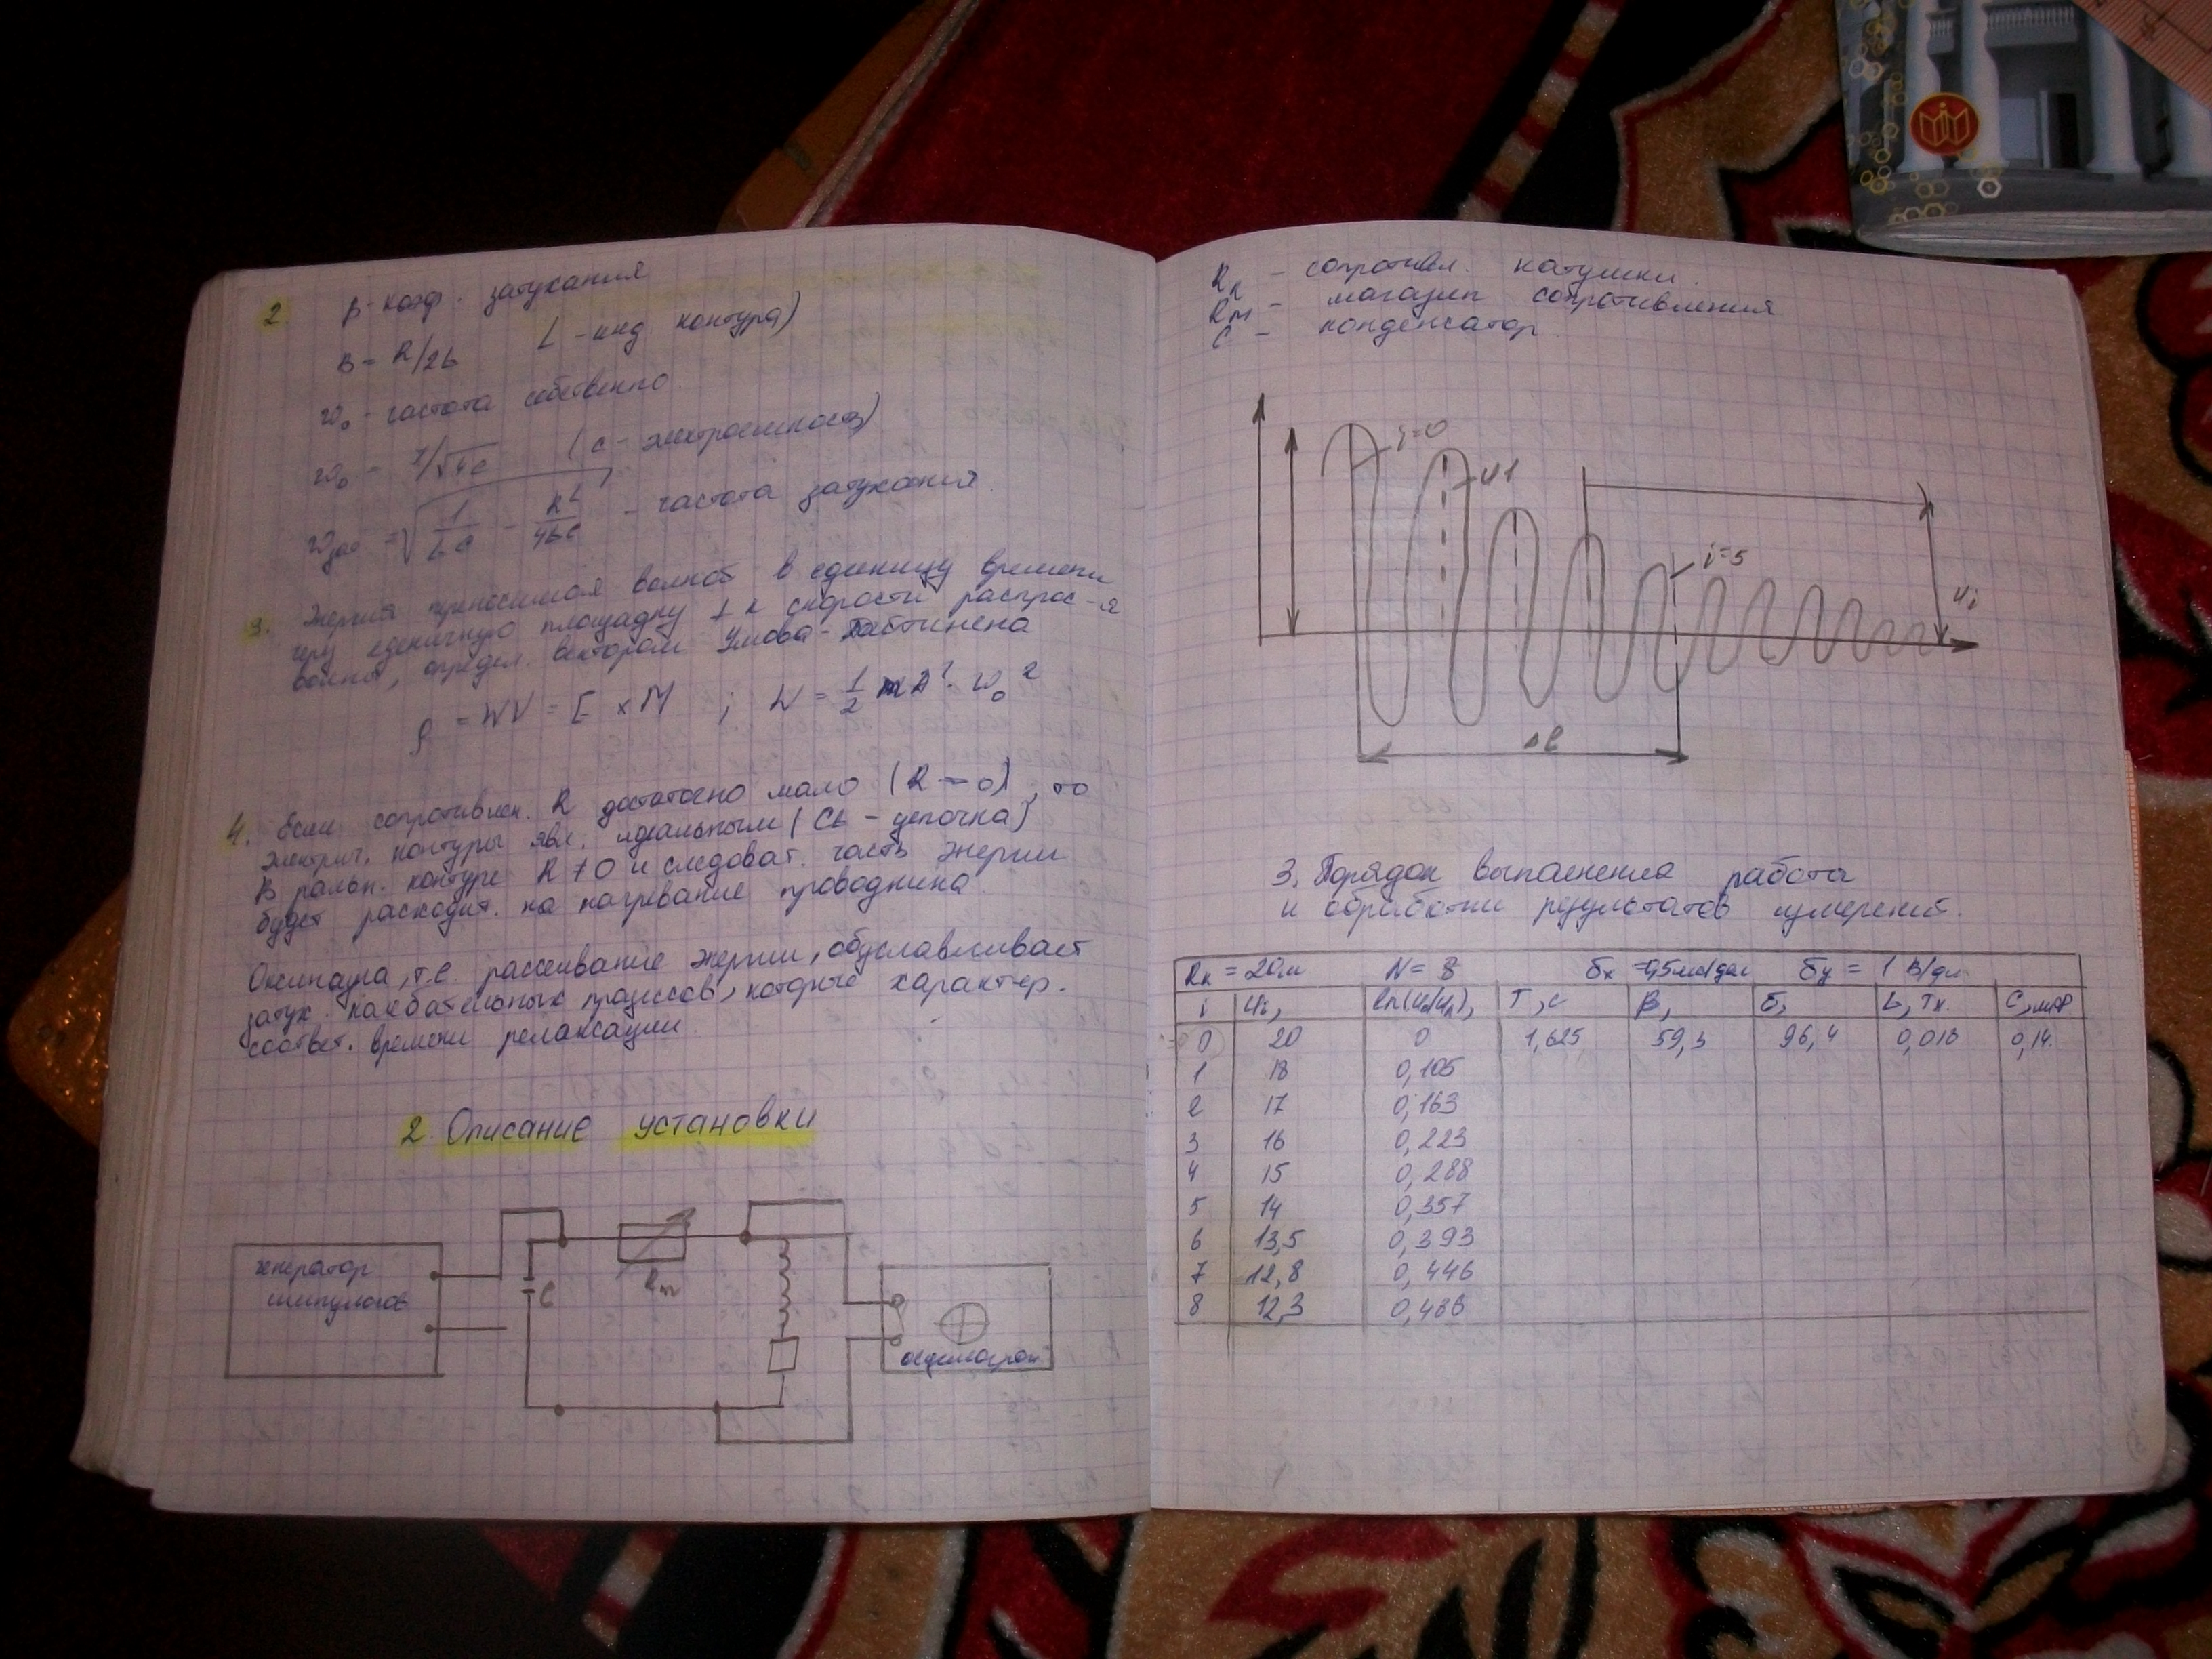 2. β - коэф. затухания
B = R/2L     L - инд. контура)
ω₀ - частота собственно.
ω₀ = 1/√LC     (C - электроемкость)
ωзат = √(1/LC - R²/4LC) - частота затухания.
3. Энергия приносимая волной в единицу времени
через единичную площадку ⊥ к скорости распрос-я
волны, определ. вектором Умова-Пойтинена
ρ = WV = E × M ; W = 1/2 mA² · ω₀²
4. Если сопротивлен. R достаточно мало (R → 0), то
электрич. контуры явл. идеальными (CL - цепочка)
В реальн. контуре R ≠ 0 и следоват. часть энергии
будет расходит. на нагревание проводника
т.е рассеивание энергии, обуславливает
затух. колебательных процессов, которые характер.
соответ. времени релаксации.
2. Описание установки
генератор
импульсов
C
Rm
осциллограф
Rк - сопротивл. катушки.
Rм - магазин сопротивления
C - конденсатор.
i=0
U1
i=5
Ui
Δl
3. Порядок выполнения работа
и обработки результатов измерений.
Rк = 20м     N = 8     δx = 0,5мс/дел     δy = 1 В/дел
i     Ui,     ln(U₀/Un),     T, с     β,     δ,     L, Гн.     C, мкФ
0     20     0     1,625     59,3     96,4     0,018     0,14.
1     18     0,105
2     17     0,163
3     16     0,223
4     15     0,288
5     14     0,357
6     13,5     0,393
7     12,8     0,446
8     12,3     0,486